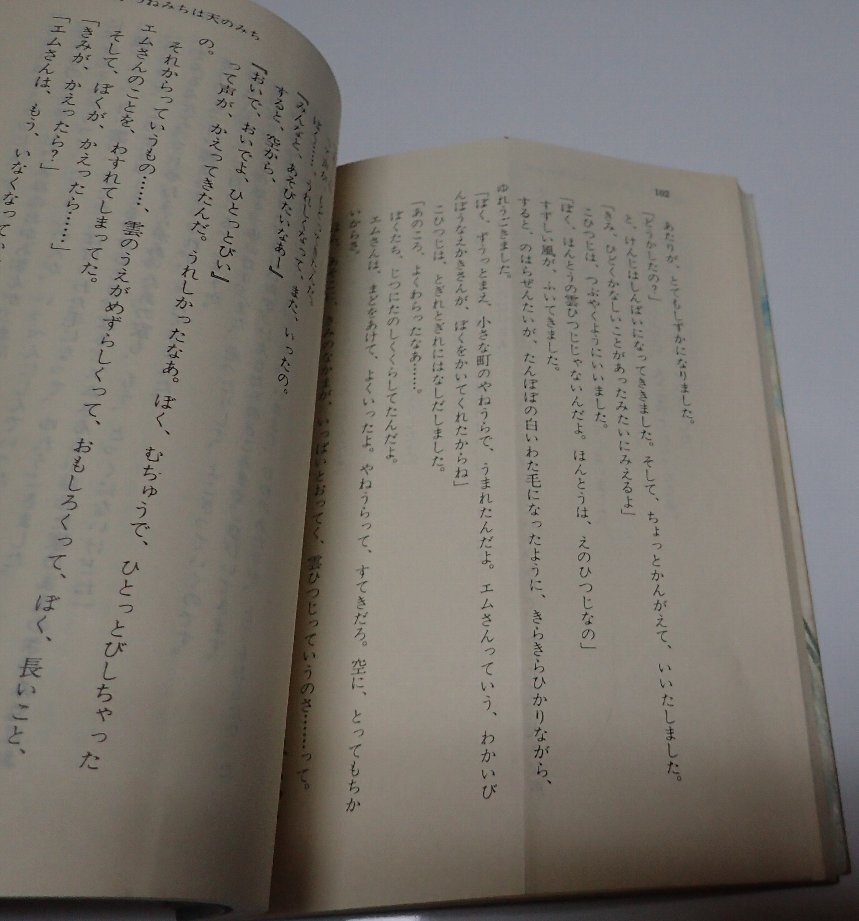 102
あたりが、とてもしずかになりました。
「どうかしたの?」
と、けんじはしんぱいになってききました。そして、ちょっとかんがえて、いいたしました。
「きみ、ひどくかなしいことがあったみたいにみえるよ」
こひつじは、つぶやくようにいいました。
「ぼく、ほんとうの雲ひつじじゃないんだよ。ほんとうは、えのひつじなの」
すずしい風が、ふいてきました。
すると、のはらぜんたいが、たんぽぽの白いわた毛になったように、きらきらひかりながら、
ゆれうごきました。
「ぼく、ずうっとまえ、小さな町のやねうらで、うまれたんだよ。エムさんっていう、わかいび
んぼうなえかきさんが、ぼくをかいてくれたからね」
こひつじは、とぎれとぎれにはなしだしました。
「あのころ、よくわらったなあ……。
ぼくたち、じつにたのしくくらしてたんだよ。
エムさんは、まどをあけて、よくいったよ。やねうらって、すてきだろ。空に、とってもちか
いからさ。
きみのなかまが、いっぱいとおってく、雲ひつじっていうのさ……って。
ねみちは天のみち
ぼく……、うれしくなって、また、いったの。
『みんなと、あそびたいなあー』
すると、空から、
『おいで、おいでよ、ひとっとびい』
って声が、かえってきたんだ。うれしかったなあ。ぼく、むぢゅうで、ひとっとびしちゃった
の。
それからっていうもの……、雲のうえがめずらしくって、おもしろくって、ぼく、長いこと、
エムさんのことを、わすれてしまってた。
そして、ぼくが、かえったら……」
「きみが、かえったら?」
「エムさんは、もう、いなくなって、